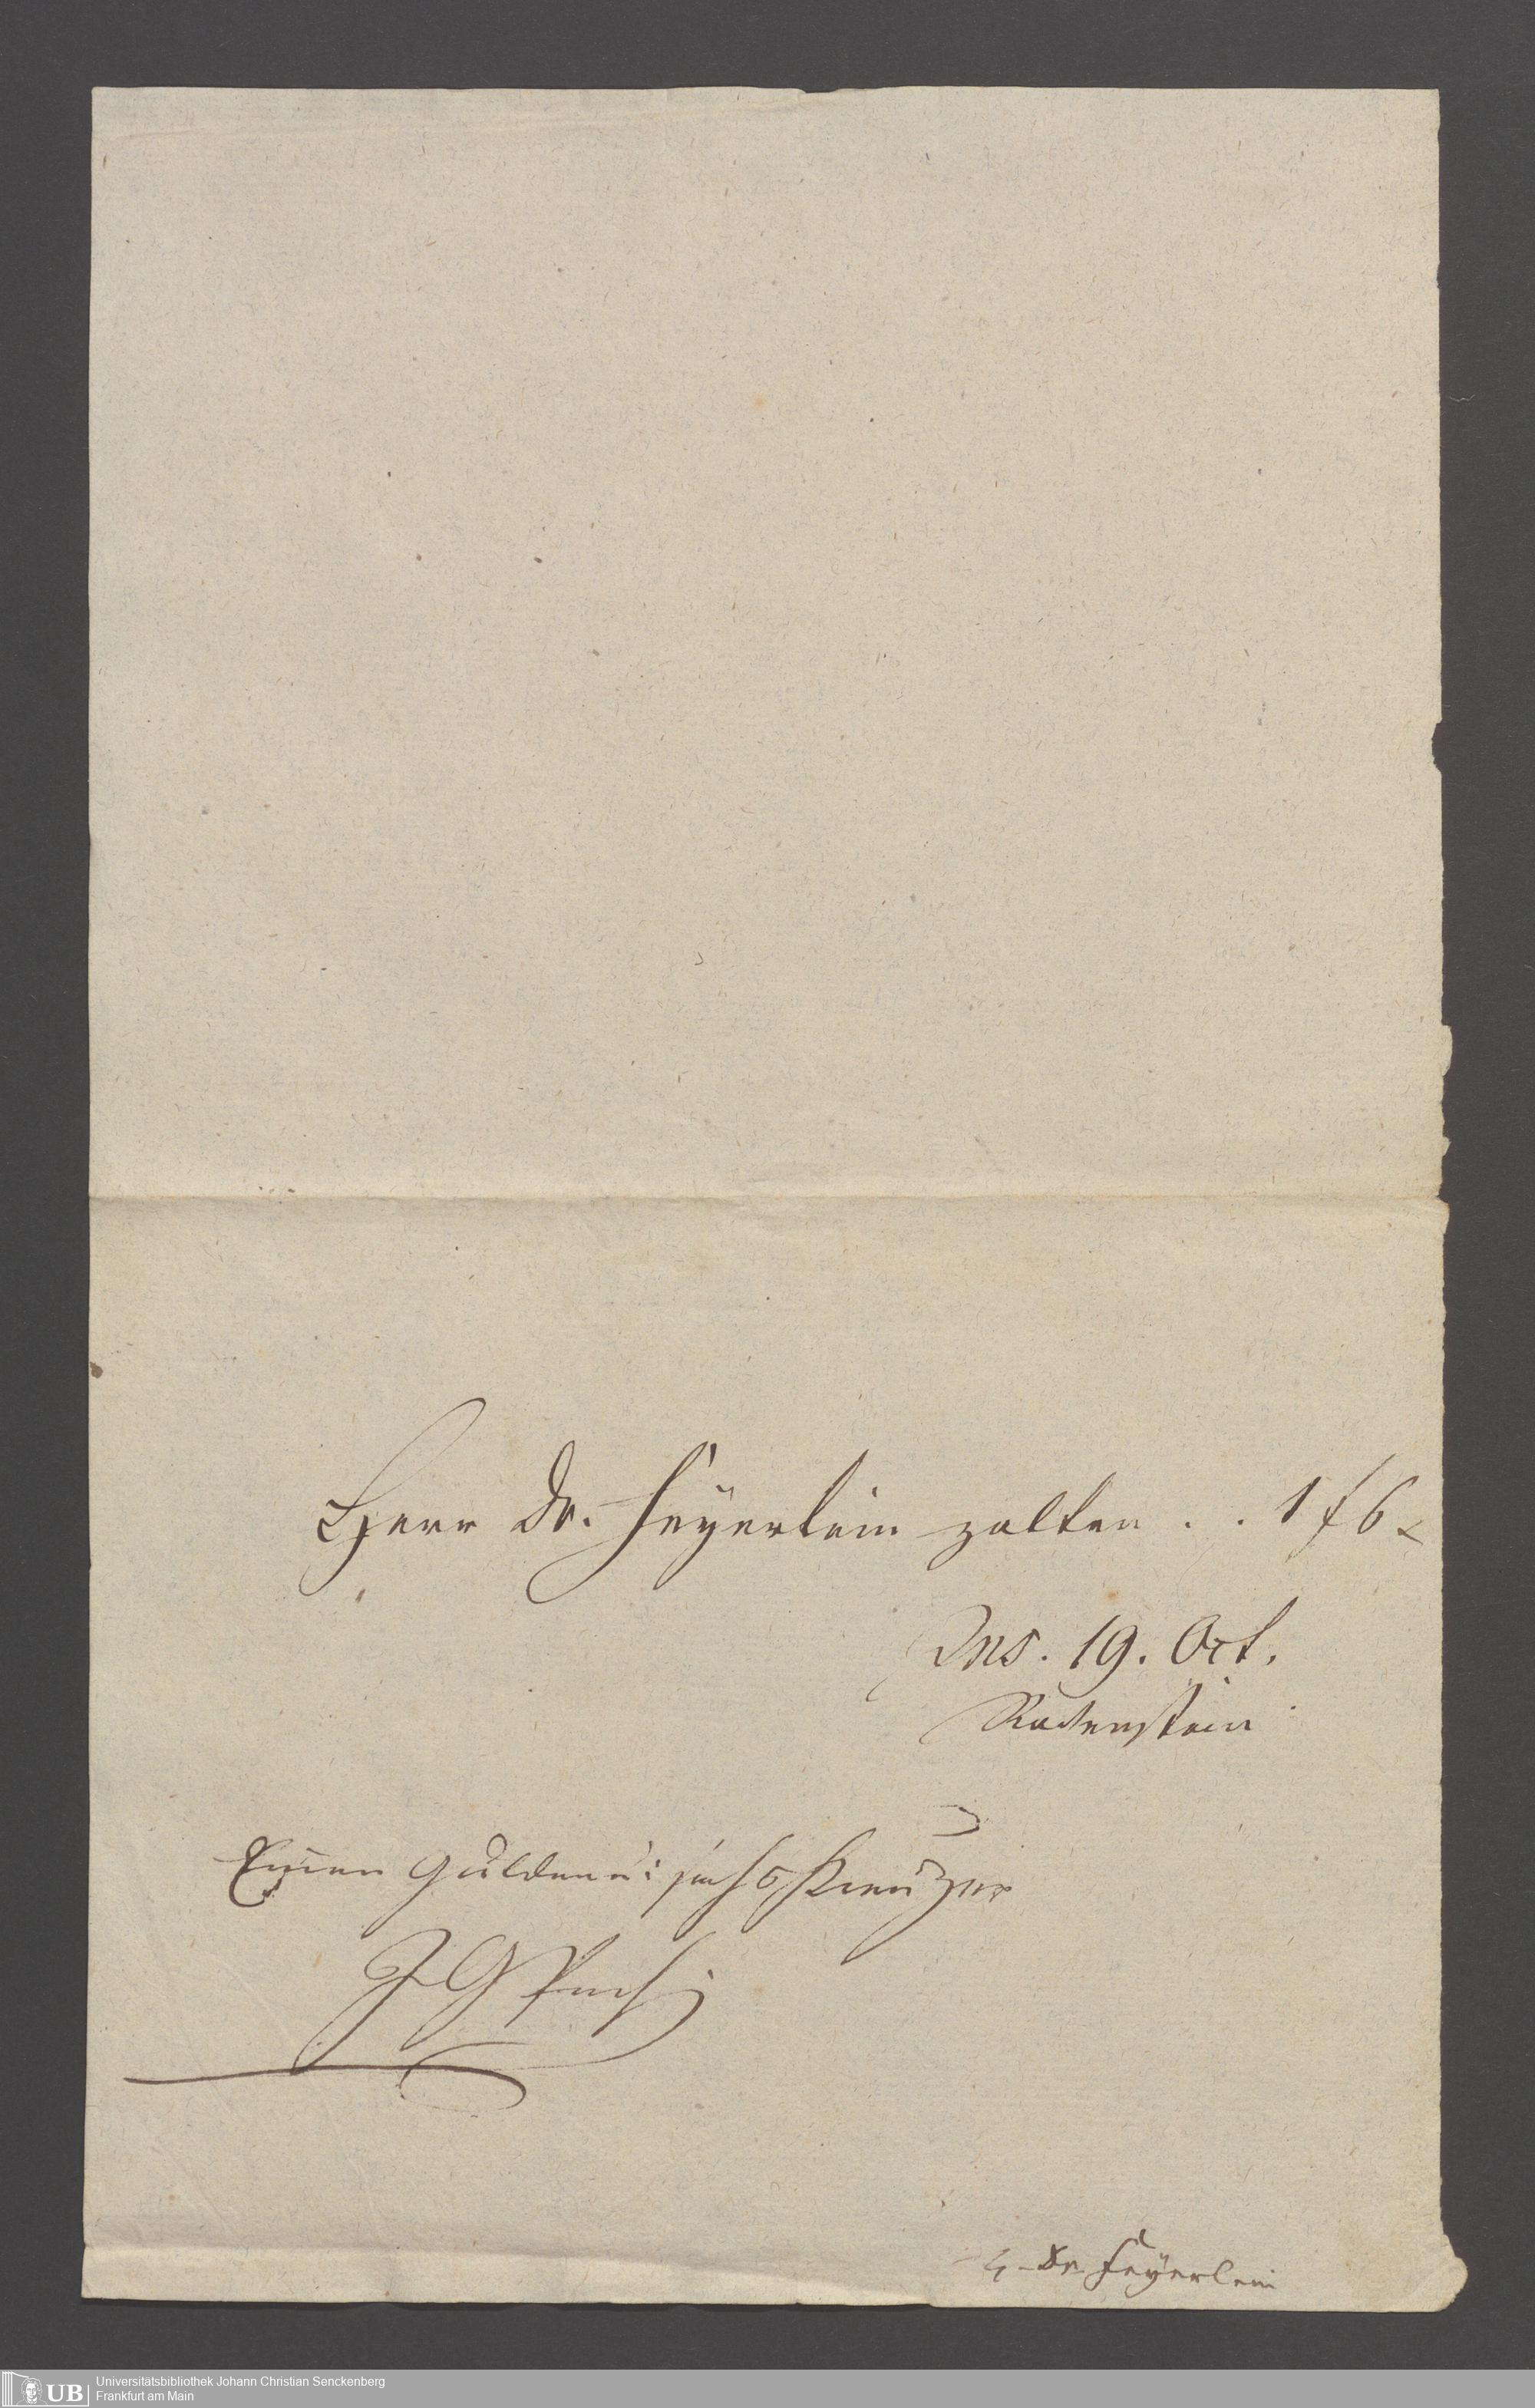 Herr Dr. Feyerlein zalten . . 1 f 6 x
Ms. 19. Oct.
Rodenstein
Einen Gulden u: sechs Kreuzer
J G
H Dr Feyerlein
UB
Universitätsbibliothek Johann Christian Senckenberg
Frankfurt am Main